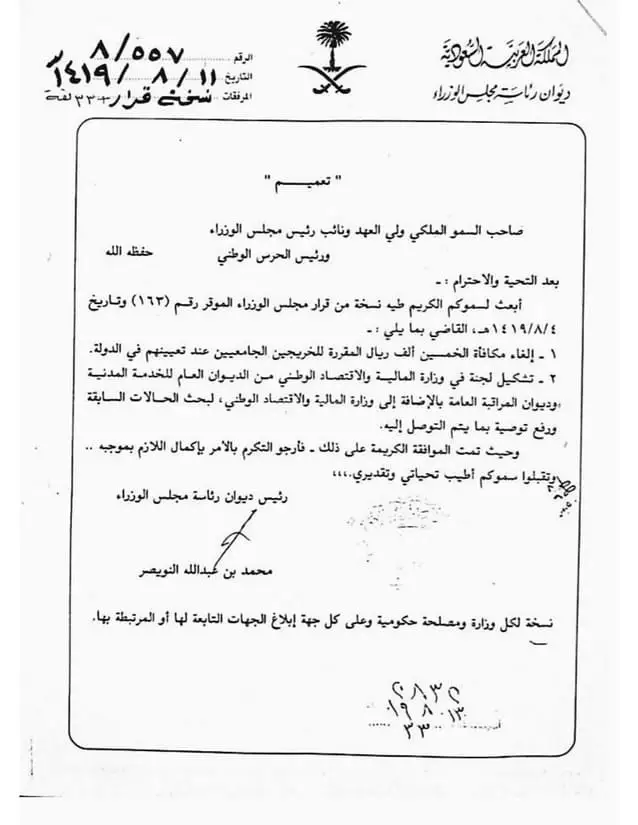 المملكة العربية السعودية
ديوان رئاسة مجلس الوزراء
الرقم ٨/٥٥٧
التاريخ ١٤١٩/٨/١١
المرفقات نسخة قرار + ٣٣ لفة
" تعميـــم "
صاحب السمو الملكي ولي العهد ونائب رئيس مجلس الوزراء
ورئيس الحرس الوطني حفظه الله
بعد التحية والاحترام : ـ
أبعث لسموكم الكريم طيه نسخة من قرار مجلس الوزراء الموقر رقم (١٦٣) وتاريخ
١٤١٩/٨/٤هـ، القاضي بما يلي : ـ
١ ـ إلغاء مكافأة الخمسين ألف ريال المقررة للخريجين الجامعيين عند تعيينهم في الدولة.
٢ ـ تشكيل لجنة في وزارة المالية والاقتصاد الوطني من الديوان العام للخدمة المدنية
وديوان المراقبة العامة بالإضافة إلى وزارة المالية والاقتصاد الوطني، لبحث الحالات السابقة
ورفع توصية بما يتم التوصل إليه.
وحيث تمت الموافقة الكريمة على ذلك ـ فأرجو التكرم بالأمر بإكمال اللازم بموجبه ..
وتقبلوا سموكم أطيب تحياتي وتقديري.،،،
رئيس ديوان رئاسة مجلس الوزراء
محمد بن عبدالله النويصر
نسخة لكل وزارة ومصلحة حكومية وعلى كل جهة إبلاغ الجهات التابعة لها أو المرتبطة بها.
١٩ ٨ ١٣
٣٣